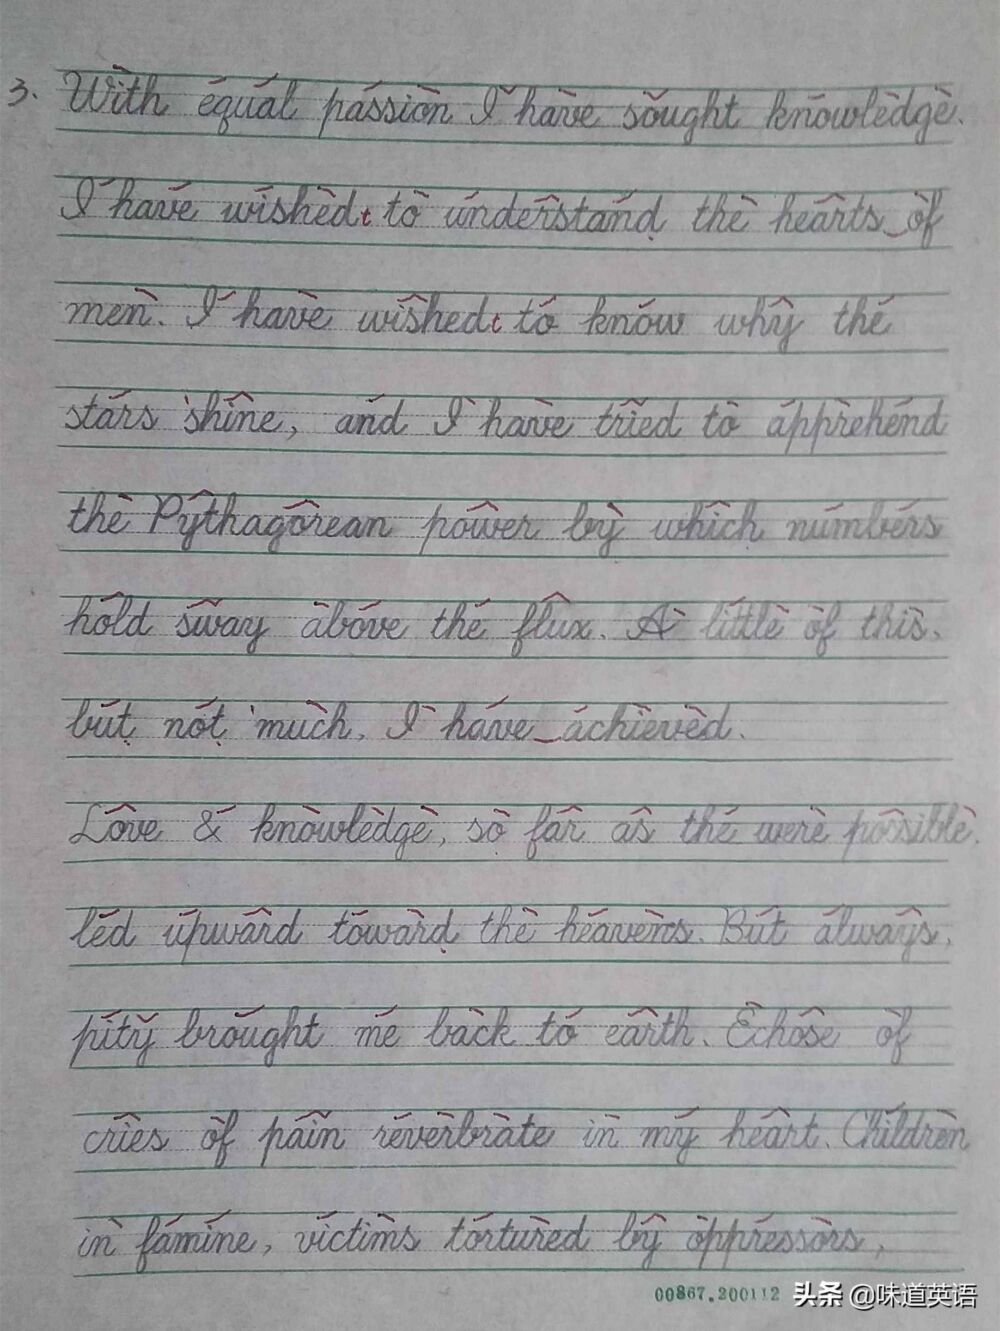 3. With equal passion I have sought knowledge.
I have wished to understand the hearts of
men. I have wished to know why the
stars shine, and I have tried to apprehend
the Pythagorean power by which numbers
hold sway above the flux. A little of this,
but not much, I have achieved.
Love & knowledge, so far as the were possible,
led upward toward the heavens. But always,
pity brought me back to earth. Echose of
cries of pain reverbrate in my heart. Children
in famine, victims tortured by oppressors,
00867.200112 头条 @味道英语